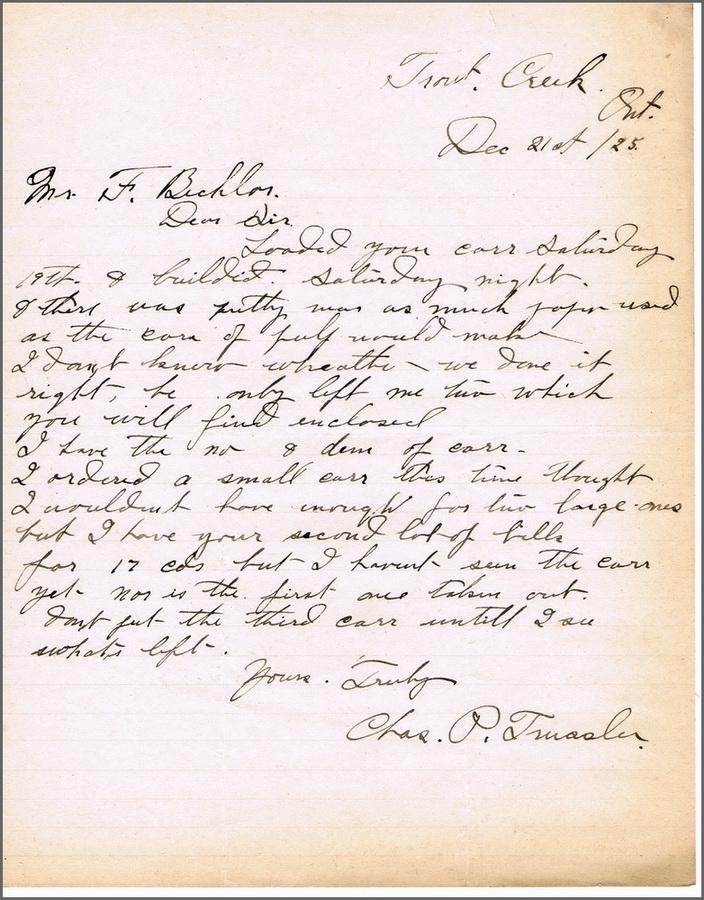 Trout. Creek.
Ont.
Dec 21st /25.
Mr. F. Bechlor.
Dear Sir.
Loaded your carr Saturday
19th. & builded. Saturday night.
& there was putty near as much paper used
as the carr of pulp would make
I dont know wheathe we done it
right, he only left me two which
you will find enclosed
I have the no & dem of carr.
I ordered a small carr this time thought
I wouldnt have enough for two large ones
but I have your second lot of bills
for 17 cds but I havent seen the carr
yet nor is the first one taken out.
dont get the third carr untill I see
whats left.
Yours. Truly
Chas. P.